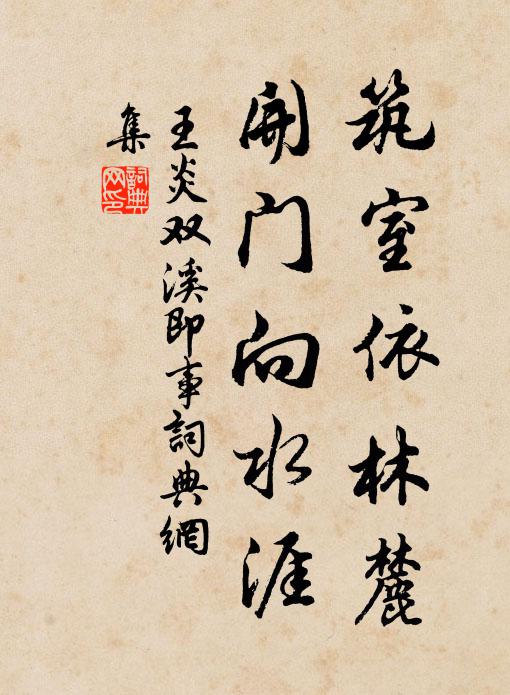 筑室依林麓
開门向水涯
王炎双溪即事詞典網
集
詞典
网印